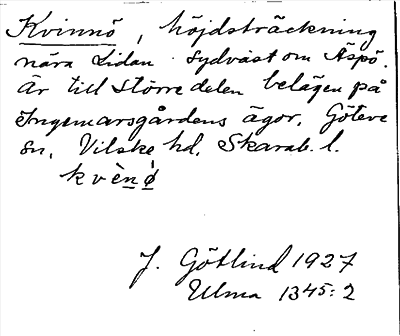 Kvinnö, höjdsträckning
nära Lidan sydväst om Äspö.
Är till större delen belägen på
Ingemarsgårdens ägor. Göteve
sn, Vilske hd. Skarab. l.
kvènö̀
J. Götlind 1927
Ulma 1345:2